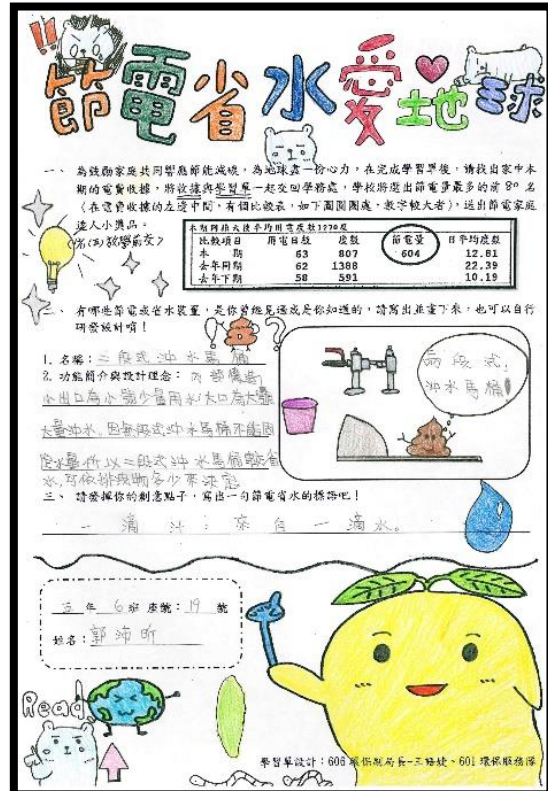 節電省水愛地球
一、 為鼓勵家庭共同響應節能減碳，為地球盡一份心力，在完成學習單後，請找出家中本
期的電費收據，將收據與學習單一起交回學務處，學校將選出節電量最多的前80名
(在電費收據的左邊中間，有個比較表，如下圖圈圈處，數字較大者)，送出節電家庭
達人小獎品。
本期同推大後平均用電度數1270度
比較項目 用電日數 度數 節電量 日平均度數
本 期 63 807 604 12.81
去年同期 62 1388 22.39
去年下期 58 591 10.19
二、 有哪些節電或省水裝置，是你曾經見過或是你知道的，請寫出並畫下來，也可以自行
研發設計唷！
1. 名稱：二段式沖水馬桶
2. 功能簡介與設計理念：內部構造
小出口為小號少量用水，大口為大號
大量沖水。因無段式沖水馬桶不能固
定水量，所以二段式沖水馬桶較省
水，可依排泄物多少來決定
兩段式
沖水馬桶！
三、 請發揮你的創意點子，寫出一句節電省水的標語吧！
一滴汁：來自一滴水。
五 年 6 班 座號：19 號
姓名：郭沛昕
Read!
學習單設計：606 環保副局長-王禘婕、601 環保服務隊